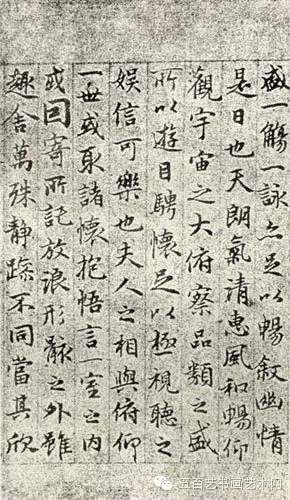 盛一觴一詠亦足以暢敘幽情
是日也天朗氣清惠風和暢仰
觀宇宙之大俯察品類之盛
所以遊目騁懷足以極視聽之
娛信可樂也夫人之相與俯仰
一世或取諸懷抱悟言一室之內
或因寄所託放浪形骸之外雖
趣舍萬殊静躁不同當其欣
五百艺书画艺术网